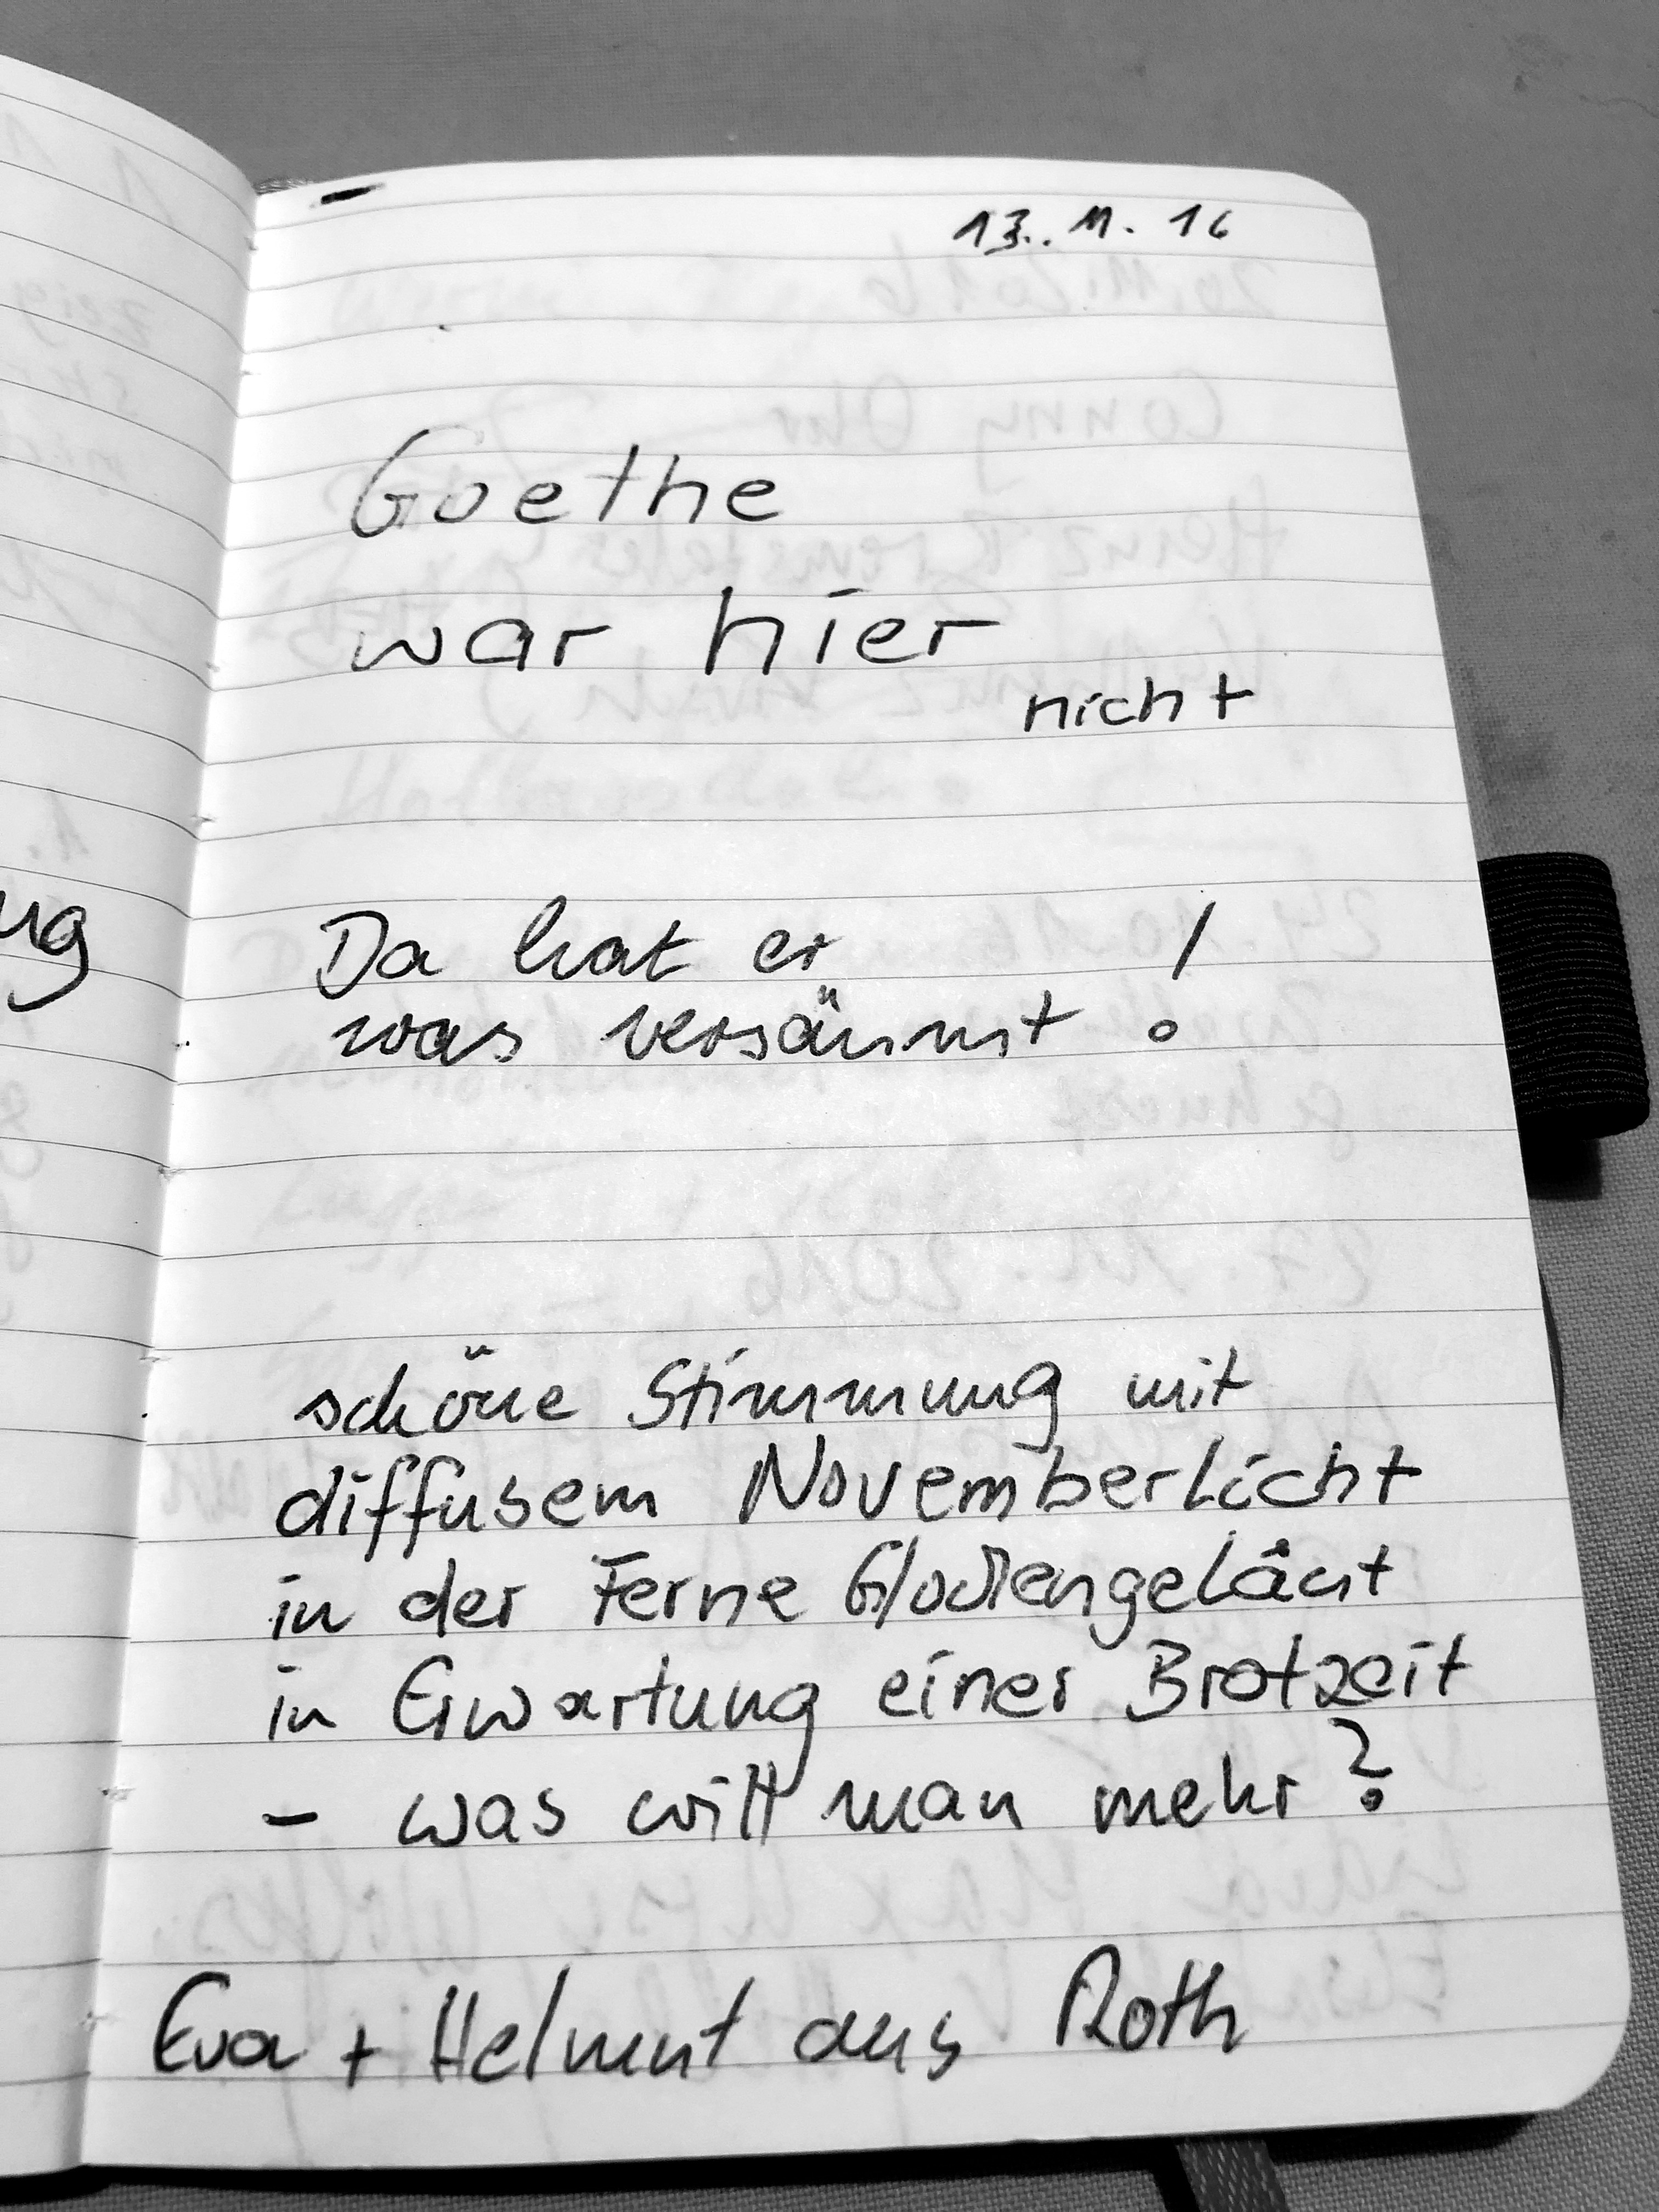 13. 11. 16
Goethe
war hier
nicht
ug
Da hat er
was versäumt!
schöne Stimmung mit
diffusem Novemberlicht
in der Ferne Glockengeläut
in Erwartung einer Brotzeit
- was will man mehr?
Eva + Helmut aus Roth